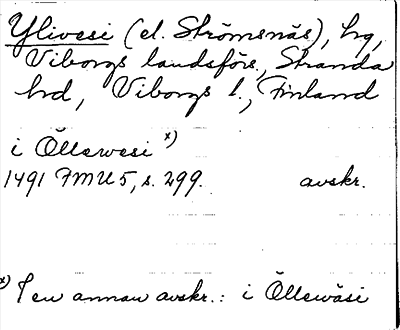 Ylivesi (el. Strömsnäs), hg,
Viborgs landsförs., Stranda
hrd, Viborgs l., Finland
i Öllewesi x)
1491 FMU 5, s. 299. avskr.
x) I en annan avskr.: i Öllewäsi